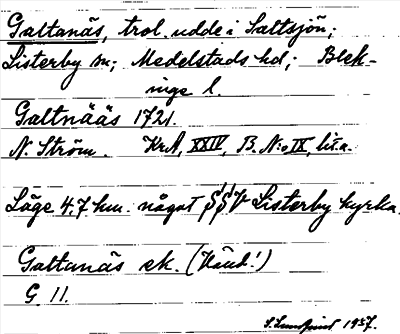 Galtanäs, trol. udde i Saltsjön;
Listerby sn; Medelstads hd; Blek-
inge l.
Galtnääs 1721.
N. Ström. KrA, XXIV, B. N:o IX, lit. a.
Läge 4,7 km. något S SV Listerby kyrka.
Galtanäs ek. (Känd!)
G. 11.
1937.